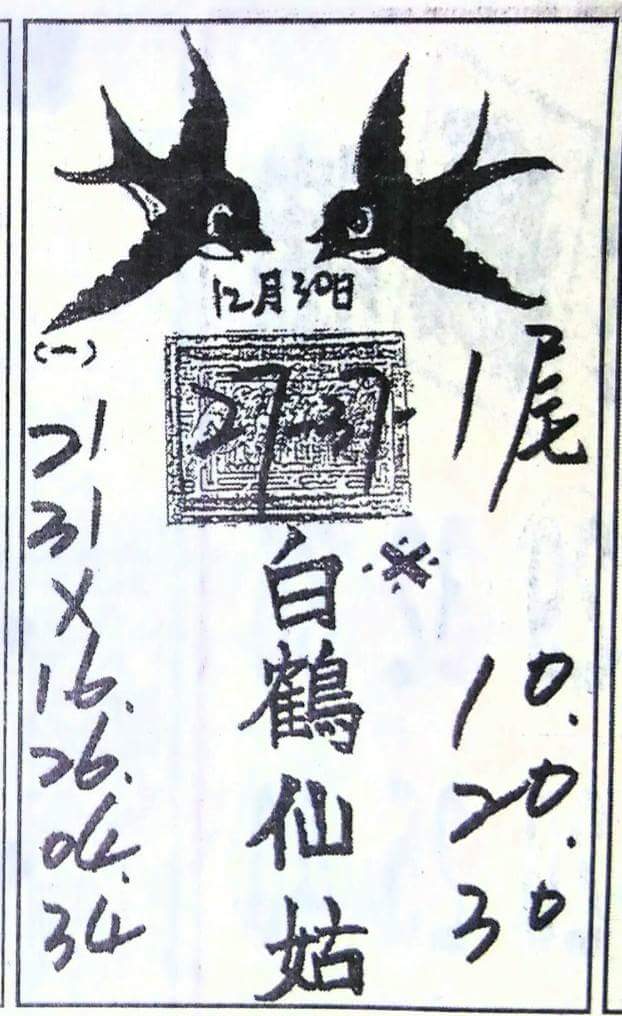 12月30日
(一)
27-37-1尾
21
31
X
16.
26.
04.
34
白鶴仙姑
10.
20.
30